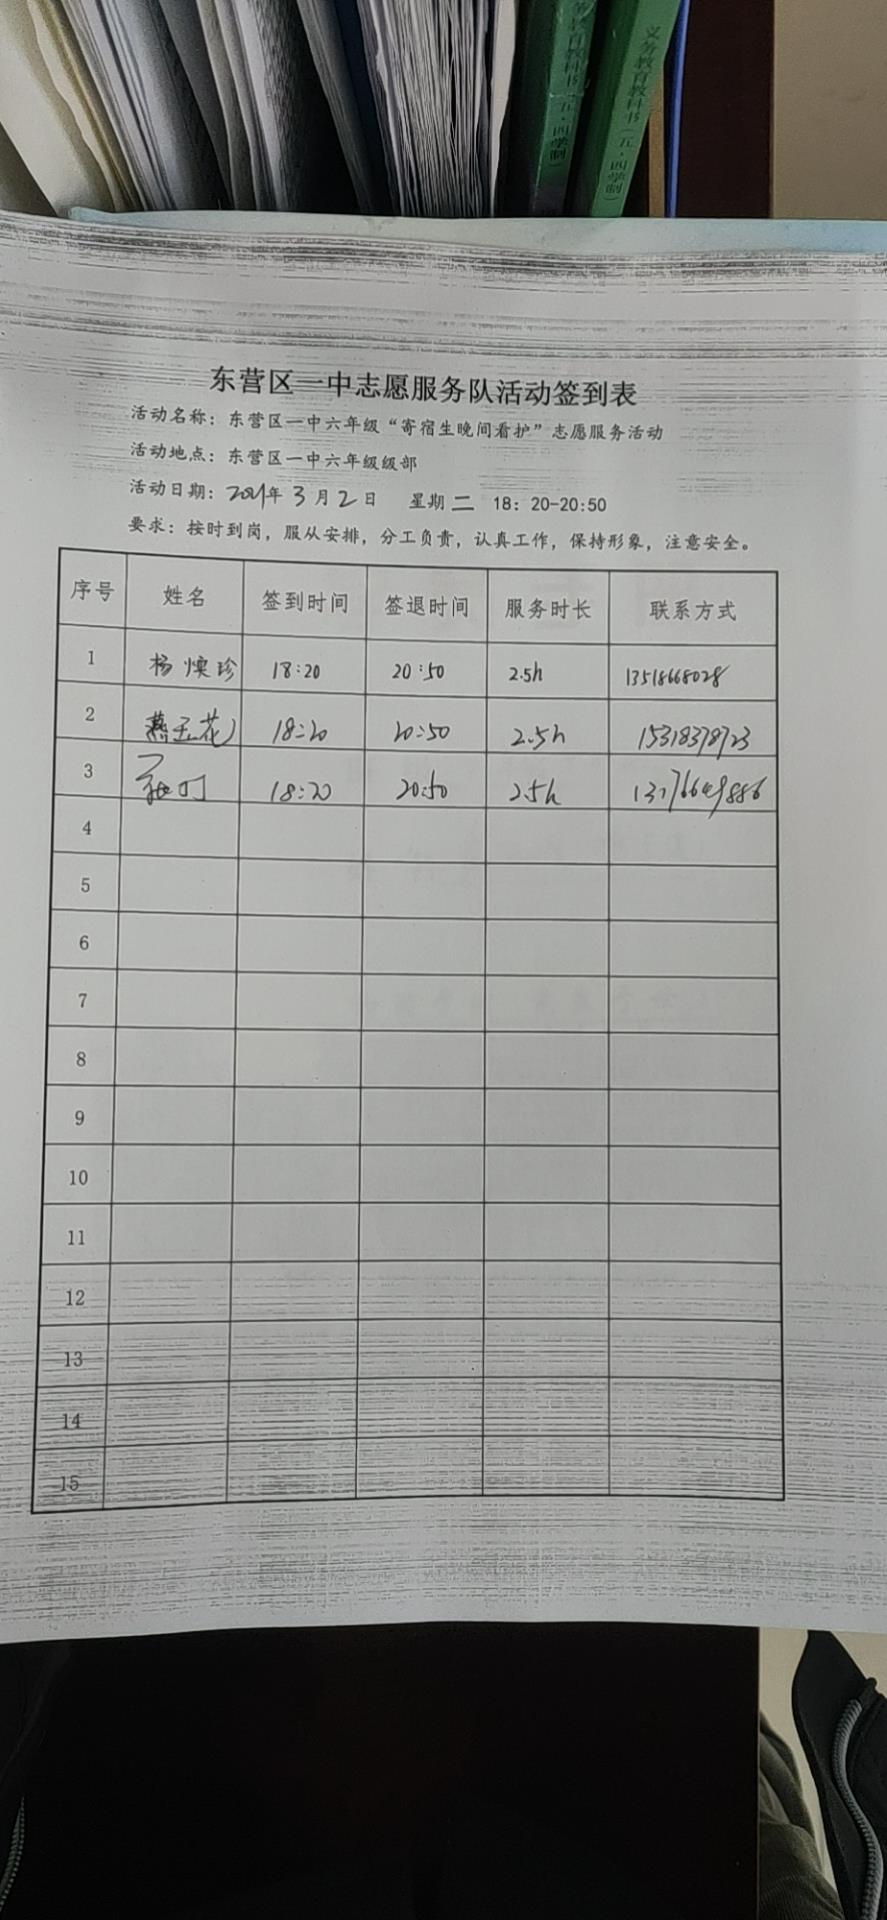 义务教育教科书(五·四学制)
义务教育教科书(五·四学制)
东营区一中志愿服务队活动签到表
活动名称：东营区一中六年级“寄宿生晚间看护”志愿服务活动
活动地点：东营区一中六年级级部
活动日期：2021年 3 月 2 日 星期 二 18：20-20:50
要求：按时到岗，服从安排，分工负责，认真工作，保持形象，注意安全。
序号 姓名 签到时间 签退时间 服务时长 联系方式
1 杨焕珍 18:20 20:50 2.5h 13518668028
2 燕玉花 18:20 20:50 2.5h 15318378723
3 18:20 20:50 2.5h
4
5
6
7
8
9
10
11
12
13
14
15